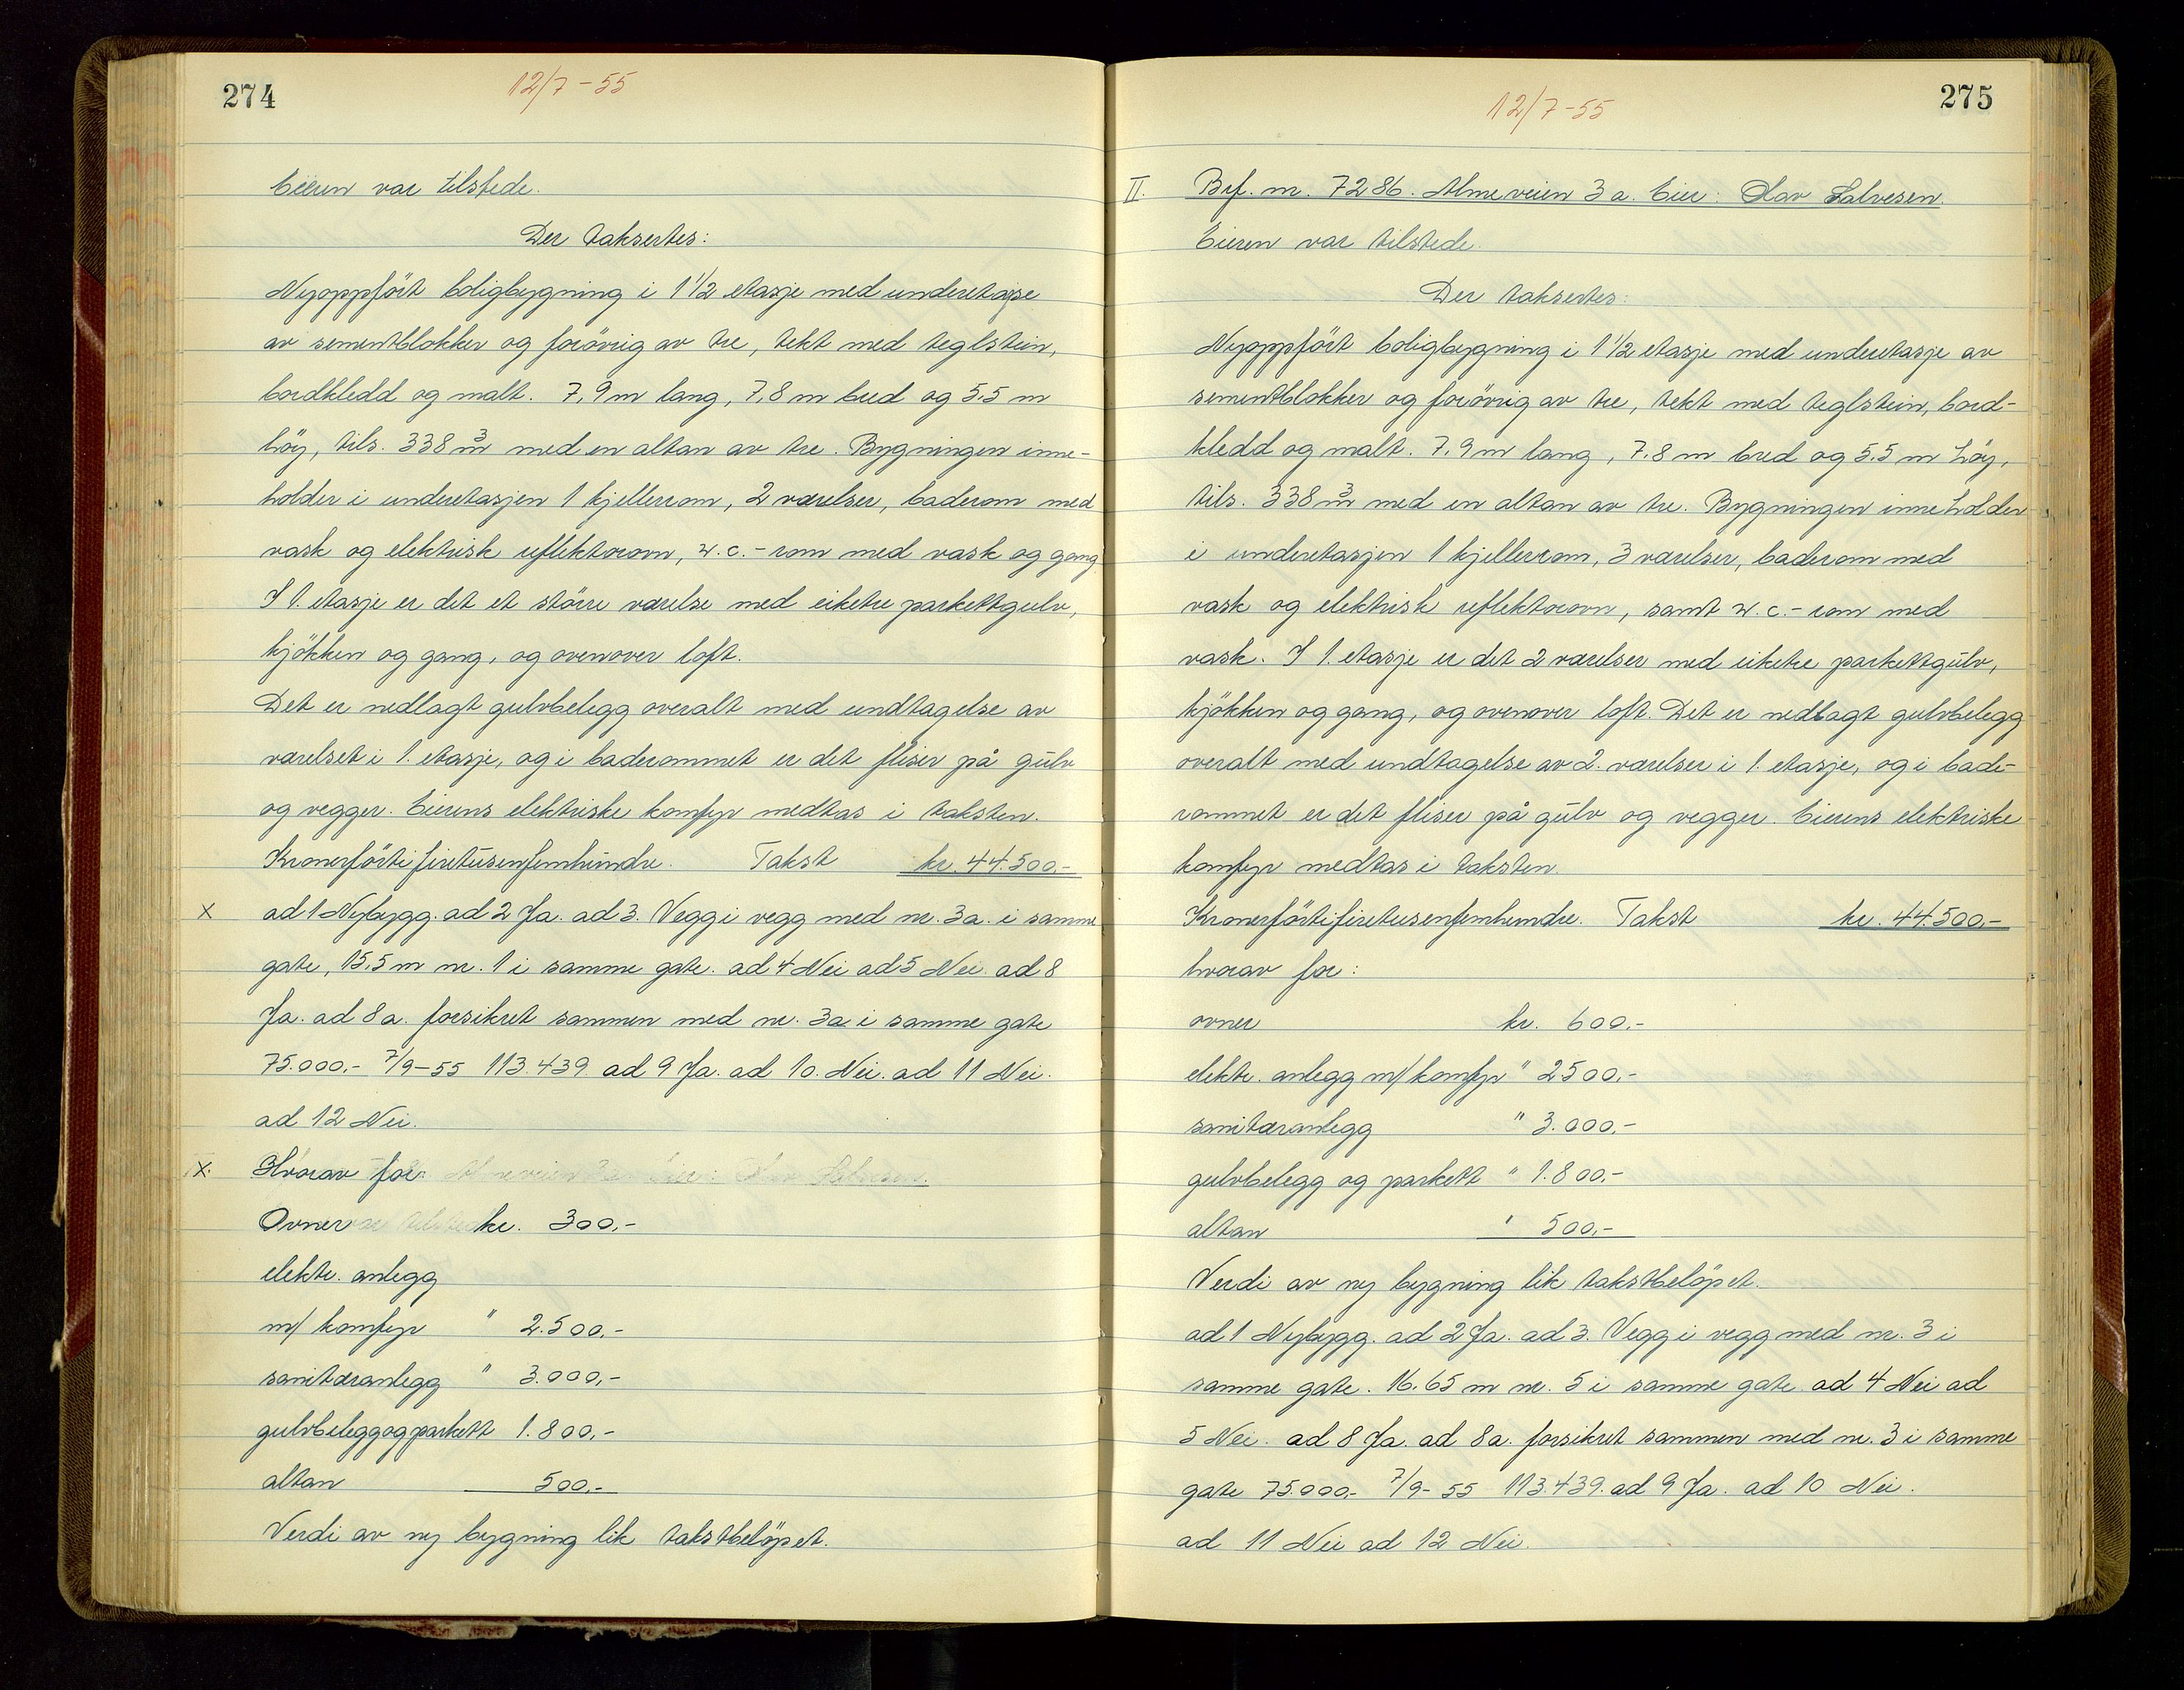 274
12/7-55
Eieren var tilstede.
Der taksertes:
Nyoppfört boligbygning i 1 1/2 etasje med underetasje
av sementblokker og forövrig av tre, tekt med teglstein,
bordkledd og malt. 7,9 m lang, 7,8 m bred og 5.5 m
höy, tils. 338 m³ med en altan av tre. Bygningen inne-
holder i underetasjen 1 kjellerrom, 2 værelser, baderom med
vask og elektrisk reflektorovn, w.c.-rom med vask og gang
I 1. etasje er det et större værelse med eiketre parkettgulv,
kjökken og gang, og ovenover loft.
Det er nedlagt gulvbelegg overalt med undtagelse av
værelset i 1. etasje, og i baderommet er det fliser på gulv
og vegger. Eierens elektriske komfyr medtas i taksten.
Kronerförtifiretusenfemhundre. Takst kr. 44.500,-
x ad 1 Nybygg. ad 2 Ja. ad 3. Vegg i vegg med nr. 3a. i samme
gate, 15,5 m nr. 1 i samme gate. ad 4 Nei ad 5 Nei. ad 8
Ja. ad 8 a. forsikret sammen med nr. 3a i samme gate
75.000.- 7/9-55 113.439 ad 9 Ja. ad 10. Nei. ad 11 Nei.
ad 12 Nei.
x. Hvorav for: Almeveien 3a Eier: Olav Salvesen.
Ovner kr. 300,-
elektr. anlegg
m/ komfyr " 2.500,-
sanitæranlegg " 3.000,-
gulvbelegg og parkett 1.800,-
altan 500,-
Verdi av ny bygning lik takstbelöpet.
275
12/7-55
II. Brf. nr. 7286. Almeveien 3 a. Eier: Olav Salvesen.
Eieren var tilstede.
Der taksertes:
Nyoppfört boligbygning i 1 1/2 etasje med underetasje av
sementblokker og forövrig av tre, tekt med teglstein, bord-
kledd og malt. 7,9 m lang, 7,8 m bred og 5,5 m höy,
tils. 338 m³ med en altan av tre. Bygningen inneholder
i underetasjen 1 kjellerrom, 3 værelser, baderom med
vask og elektrisk reflektorovn, samt w.c.-rom med
vask. I 1. etasje er det 2 værelser med eiketre parkettgulv,
kjökken og gang, og ovenover loft. Det er nedlagt gulvbelegg
overalt med undtagelse av 2. værelser i 1. etasje, og i bade-
rommet er det fliser på gulv og vegger. Eierens elektriske
komfyr medtas i taksten.
Kronerförtifiretusenfemhundre. Takst kr. 44.500,-
hvorav for:
ovner kr. 600.-
elektr. anlegg m/ komfyr " 2500,-
sanitæranlegg " 3.000,-
gulvbelegg og parkett " 1.800,-
altan " 500,-
Verdi av ny bygning lik takstbelöpet.
ad 1 Nybygg. ad 2 Ja. ad 3. Vegg i vegg med nr. 3 i
samme gate. 16.65 m nr. 5 i samme gate ad 4 Nei ad
5 Nei. ad 8 Ja. ad 8a. forsikret sammen med nr. 3 i samme
gate 75.000.- 7/9-55 113.439. ad 9 Ja. ad 10 Nei.
ad 11 Nei ad 12 Nei.